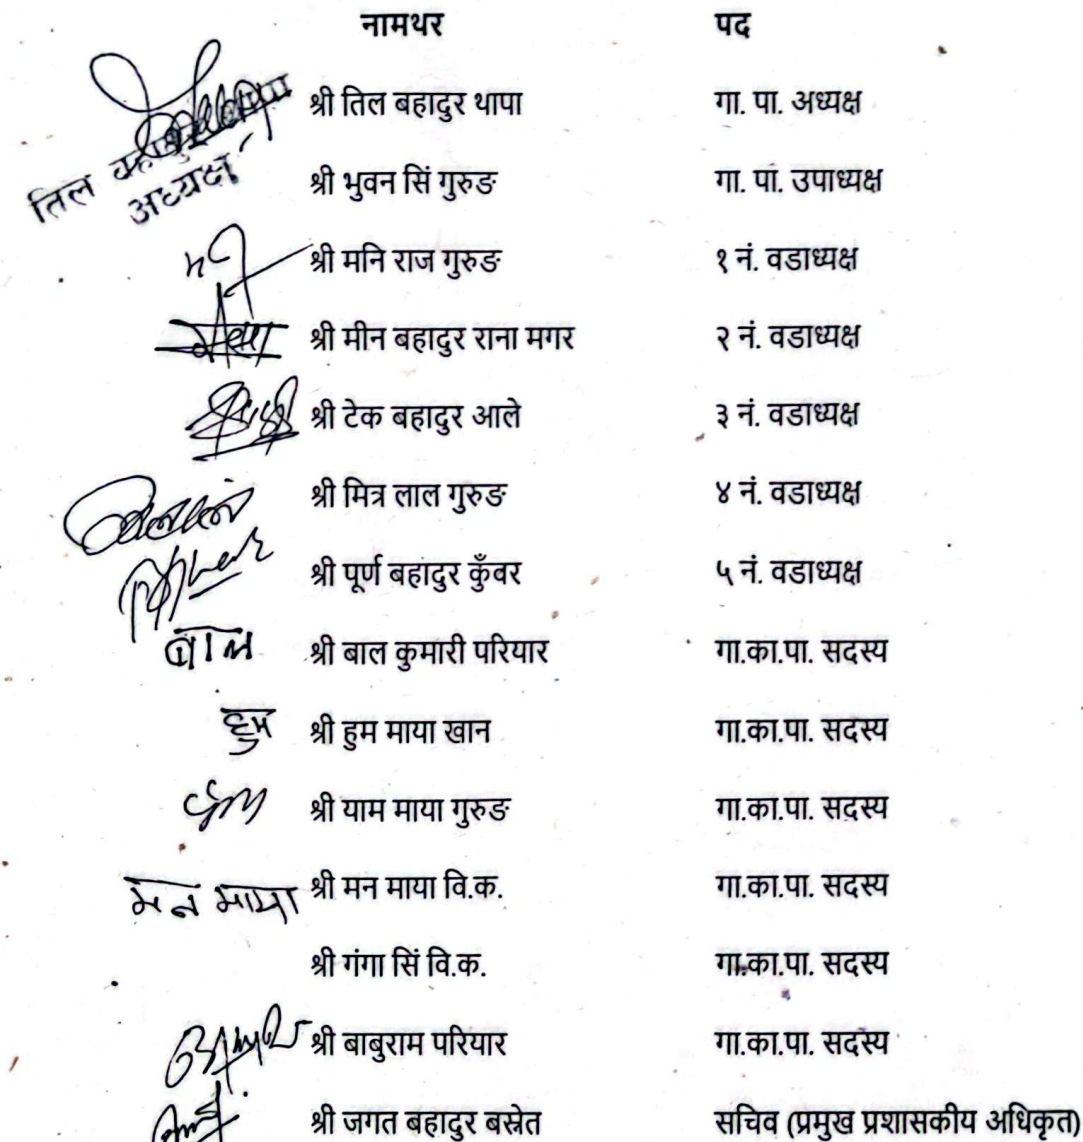 नामथर पद
श्री तिल बहादुर थापा गा. पा. अध्यक्ष
तिल
अध्यक्ष
श्री भुवन सिं गुरुङ गा. पा. उपाध्यक्ष
श्री मनि राज गुरुङ १ नं. वडाध्यक्ष
श्री मीन बहादुर राना मगर २ नं. वडाध्यक्ष
श्री टेक बहादुर आले ३ नं. वडाध्यक्ष
श्री मित्र लाल गुरुङ ४ नं. वडाध्यक्ष
श्री पूर्ण बहादुर कुँवर ५ नं. वडाध्यक्ष
बाल श्री बाल कुमारी परियार गा.का.पा. सदस्य
हुम श्री हुम माया खान गा.का.पा. सदस्य
श्री याम माया गुरुङ गा.का.पा. सदस्य
मन माया श्री मन माया वि.क. गा.का.पा. सदस्य
श्री गंगा सिं वि.क. गा.का.पा. सदस्य
श्री बाबुराम परियार गा.का.पा. सदस्य
श्री जगत बहादुर बस्नेत सचिव (प्रमुख प्रशासकीय अधिकृत)